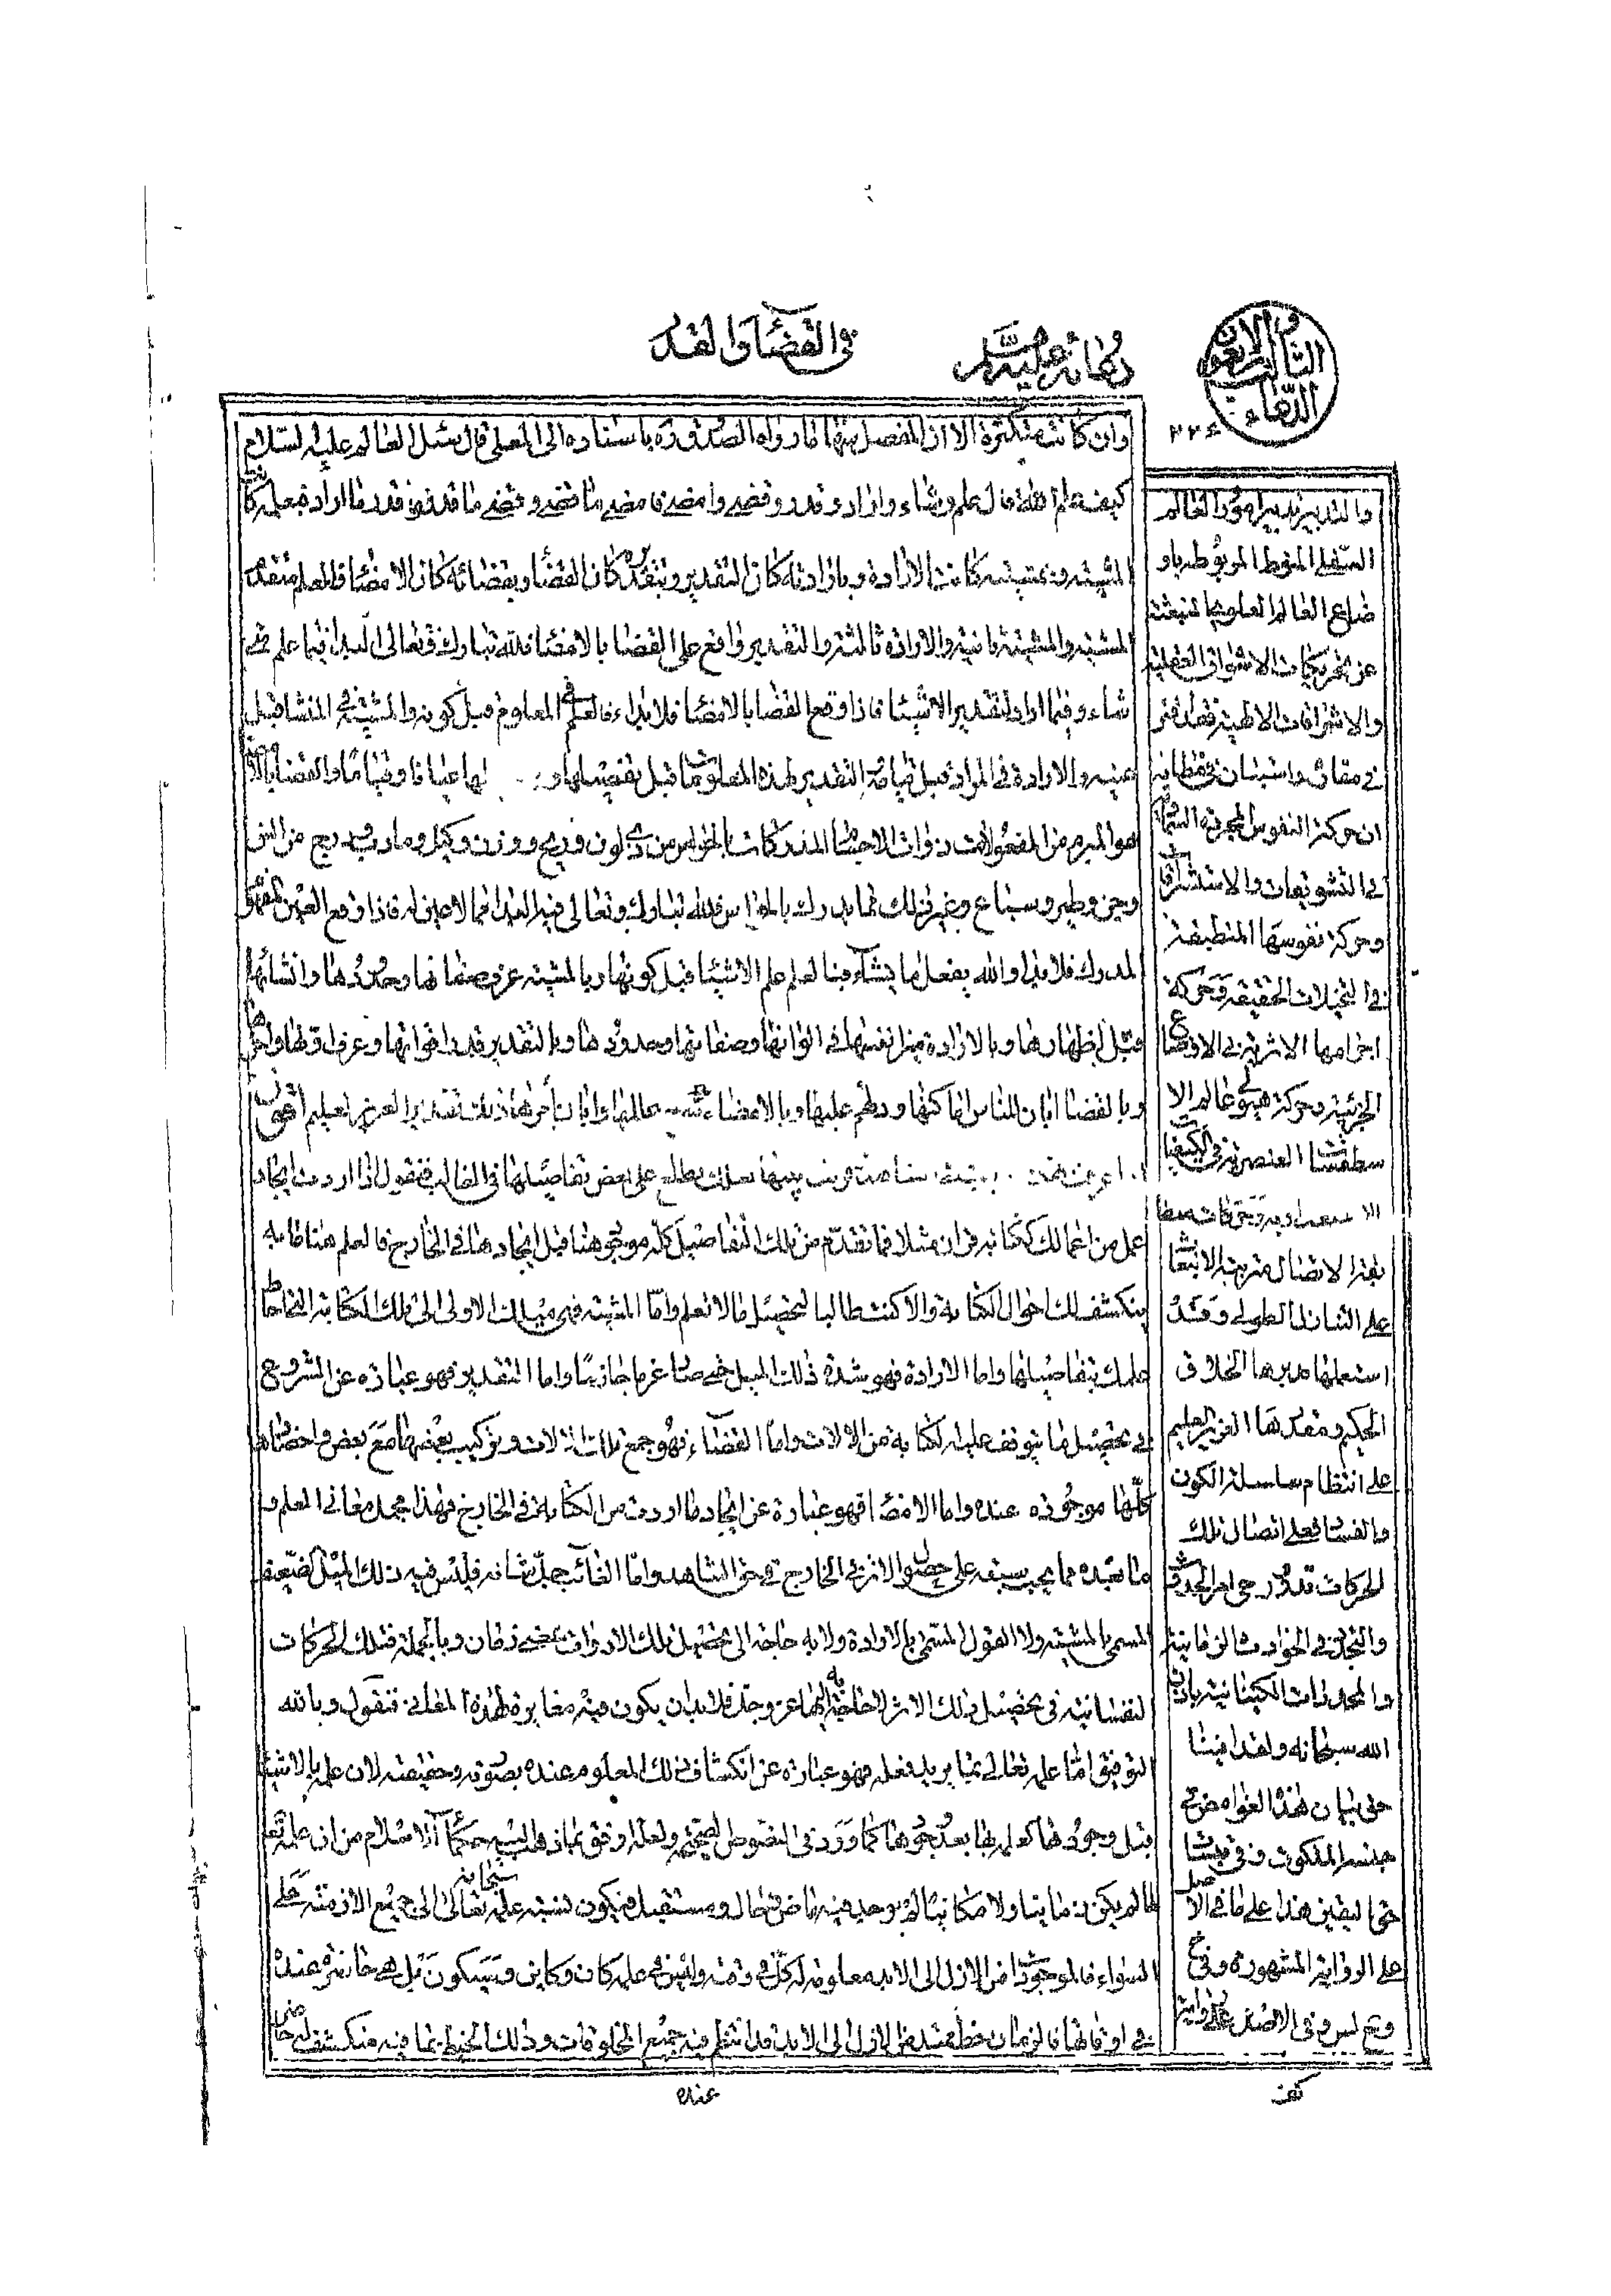 الدعاء الثالث والاربعون
٢٢٤
دعائه عليه السلام
في القضا والقدر
وان كانت متكثرة الا ان المفصل منها ما رواه الصدوق ره باسناده الى المعلى قال سئل العالم عليه السلام
كيف علم الله قال علم وشاء واراد وقدر وقضى وامضى فامضى ما قضى وقضى ما قدر وقدر ما اراد فبعلمه كانت
المشيته وبمشيته كانت الارادة وبارادته كان التقدير وبتقديره كان القضا وبقضائه كان الامضا فالعلم متقدم
المشيه والمشيئة ثانيه والارادة ثالثه والتقدير واقع على القضا بالامضا فلله تبارك وتعالى البدا فيما علم متى
شاء وفيما اراد لتقدير الاشيا فاذا وقع القضا بالامضا فلا بداء فالعلم في المعلوم قبل كونه والمشيئة في المنشا قبل
عينه والارادة في المراد قبل قيامه والتقدير لهذه المعلومات قبل تفصيلها و لها عيانا وقياما والقضا بالامضا
هو المبرم من المفعولات ذوات الاجسا المدركات بالحواس من ذي لون وريح ووزن وكيل ومادب ودرج من انس
وجن وطير وسباع وغير ذلك مما يدرك بالحواس فلله تبارك وتعالى فيه البدا مما لا عين له فاذا وقع العين المفهوم
المدرك فلا بدا والله يفعل ما يشاء فبالعلم علم الاشيا قبل كونها وبالمشيته عرف صفاتها وحدودها وانشائها
قبل اظهارها وبالارادة ميز انفسها في الوانها وصفاتها وحدودها وبالتقدير قدر اقواتها وعرف اولها واخرها
وبالقضا ابان للناس اماكنها ودلهم عليها وبالامضاء عللها وابان امرها ذلك تقدير العزيز العليم انتهى
بعض تفاصيلها في الغالب فنقول اذا اردت ايجاد
عمل من اعمالك ككتابه قران مثلا فما تقدم من تلك التفاصيل كله موجود هنا قبل ايجادها في الخارج فالعلم هنا ما به
ينكشف لك احوال الكتابة والا كنت طالبا لتحصيل ما لا تعلم واما المشيته فهي ميلك الاولى الى تلك الكتابة التي احاط
علمك بتفاصيلها واما الارادة فهو شدة ذلك الميل حتى صار عزما جازما واما التقدير فهو عبارة عن الشروع
في تحصيل ما يتوقف عليه الكتابة من الالات واما القضاء فهو جمع تلك الالات وتركيب بعضها مع بعض واحضارها
كلها موجوده عنده واما الامضا فهو عبارة عن ايجاد ما اردت من الكتابة في الخارج فهذا مجمل معاني العلم و
ما بعده مما يجب سبقه على حصول الاثر في الخارج في حق الشاهد واما الغائب جل شانه فليس فيه ذلك الميل الضعيف
المسمى بالمشيته ولا القول المسمى بالارادة ولا به حاجة الى تحصيل تلك الادوات بمضي زمان وبالجملة فتلك الحركات
النفسانيه في تحصيل ذلك الاثر لا حاجة به اليها عز وجل فلا بد ان يكون فيه مغايرة لهذه المعاني فنقول وبالله
التوفيق اما علمه تعالى بما يريد فعله فهو عبارة عن انكشاف ذلك المعلوم عنده بصورته وحقيقته لان علمه بالاشيا
قبل وجودها كعلمه بها بعد وجودها كما ورد في النصوص الصحيحة ولعله اوفق بما ذهب اليه حكماء الاسلام من ان علمه تعالى
لما لم يكن زمانيا ولا مكانيا لم يوجد فيه ماض وحال ومستقبل فيكون نسبته علمه سبحانه تعالى الى جميع الازمنة على
السواء فالموجودات من الازل الى الابد معلومة له كل في وقته وليس في علمه كان وكاين وسيكون بل هي حاضرة عنده
في اوقاتها فالزمان خط ممتد من الازل الى الابد قد انتظم فيه جميع المخلوقات وذلك الخيط بما فيه منكشف له حاضر
عنده
والتدبير تدبير امور العالم
السفلي المنوط المربوط باو
ضاع العالم العلوي المنبعثة
عن تحريكات الاشواق العقلية
والاشراقات الالهية فقد قرر
في مقاره واستبان في مظانه
ان حركة النفوس المجردة السماوية
في التشوقات والاستشراقات
وحركة نفوسها المنطبعة
في التخيلات الحقيقه وحركة
اجرامها الاثيرية في الاوضاع
الجزئية وحركة هيولى عالم الا
سطقسات العنصرية في الكيفيات
الاستعدادية
بهذا الاتصال مترتبة الانبعاث
على التنازل الطولي وقد
استعملها مدبرها الخلاق
الحكيم ومقدرها العزيز العليم
على انتظام سلسلة الكون
والفساد فعلى اتصال تلك
الحركات تدور رحى امر الحدوث
والتجدد في الحوادث الزمانية
والمحدودات الكيانية باذن
الله سبحانه ولقد اتينا
حق بيان هذه الغوامض في
جلسة الملكوت وفي
حق اليقين هذا على ما في الاصل
على الرواية المشهورة وفي خ
و ليس في الاصل على رواية
كف